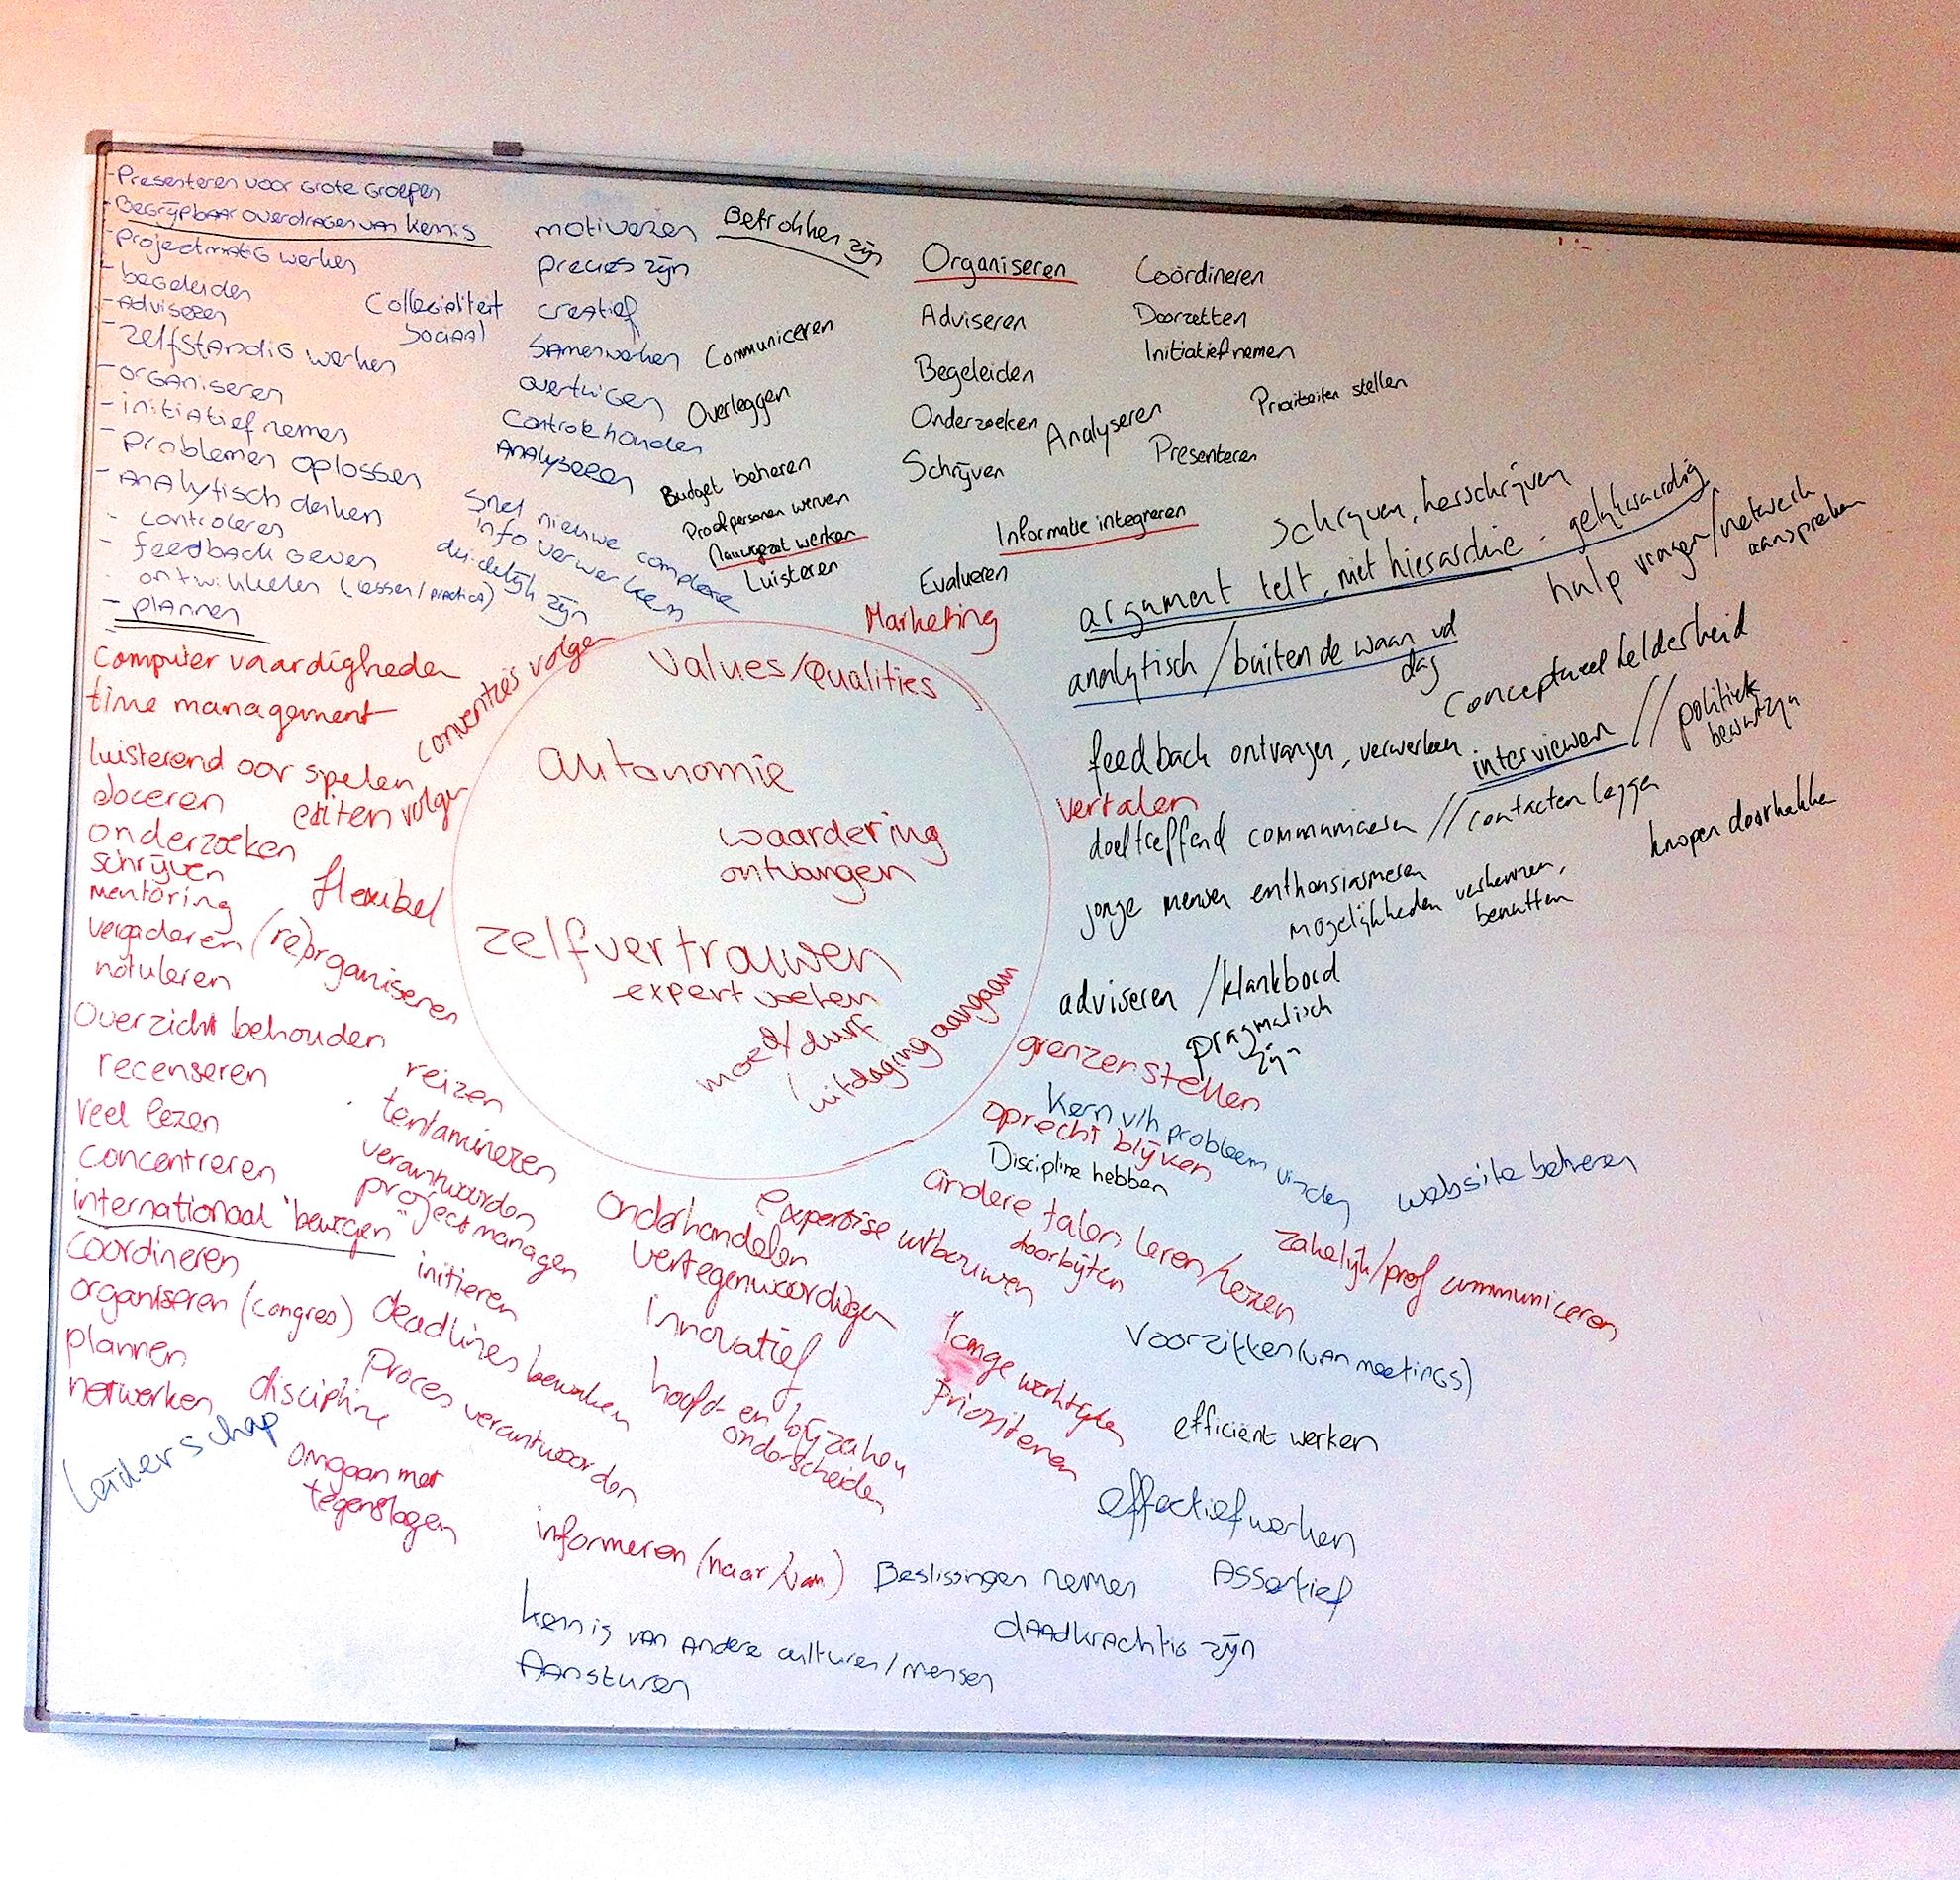 - Presenteren voor grote groepen
- Begrijpbaar overdragen van kennis
- projectmatig werken
- begeleiden
- Adviseren
- zelfstandig werken
- organiseren
- initiatief nemen
- problemen oplossen
- Analytisch denken
- controleren
- feedback geven
- ontwikkelen (lessen/practica)
- plannen
Collegialiteit
Sociaal
motiveren
precies zijn
creatief
Samenwerken
overtuigen
Controle houden
Analyseren
Snel nieuwe complexe
info verwerken
duidelijk zijn
Betrokken zijn
Communiceren
Overleggen
Budget beheren
Proefpersonen werven
Nauwgezet werken
Luisteren
Organiseren
Adviseren
Begeleiden
Onderzoeken
Schrijven
Analyseren
Informatie integreren
Evalueren
Coördineren
Doorzetten
Initiatief nemen
Prioriteiten stellen
Presenteren
schrijven, herschrijven
argument telt, niet hierarchie - gelijkwaardig
hulp vragen/netwerk
aanspreken
analytisch / buiten de waan vd
dag
Conceptueel helderheid
feedback ontvangen, verwerken
interviewen // politiek
bewustzijn
vertalen
doeltreffend communiceren // contacten leggen
jonge mensen enthousiasmeren
mogelijkheden verkennen,
benutten
knopen doorhakken
adviseren / klankbord
pragmatisch
zijn
Marketing
Values/Qualities
autonomie
waardering
ontvangen
zelfvertrouwen
expert voelen
moed/durf
uitdaging aangaan
Computer vaardigheden
time management
conventies volgen
luisterend oor spelen
doceren
editen volgen
onderzoeken
schrijven
mentoring
flexibel
vergaderen
(re)organiseren
notuleren
Overzicht behouden
recenseren
reizen
veel lezen
tentamineren
concentreren
verantwoorden
projectmanagen
internationaal "bewegen"
coördineren
initiëren
organiseren (congres)
deadlines bewaken
plannen
Proces verantwoorden
netwerken
discipline
Leiderschap
omgaan met
tegenslagen
grenzen stellen
Kern v/h probleem vinden
oprecht blijven
Discipline hebben
andere talen leren/lezen
website beheren
Onderhandelen
expertise uitbouwen
doorbijten
zakelijk/prof communiceren
vertegenwoordigen
Innovatief
lange werktijden
Voorzitten (van meetings)
hoofd- en bijzaken
onderscheiden
Prioriteren
efficiënt werken
effectief werken
informeren (naar/van)
Beslissingen nemen
Assertief
kennis van andere culturen/mensen
daadkrachtig zijn
Aansturen